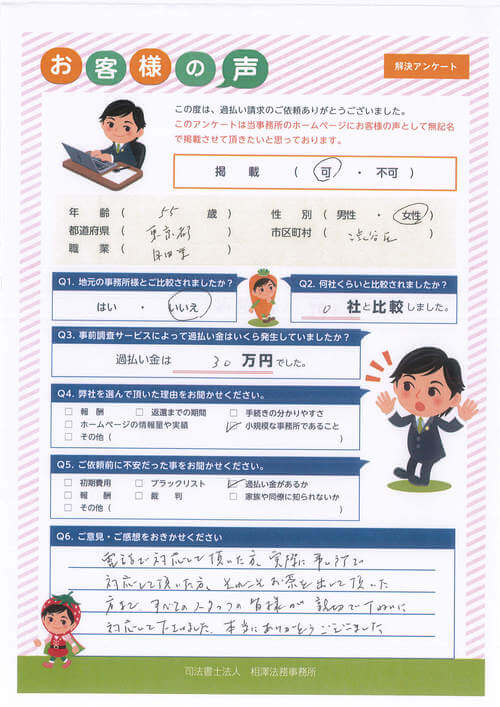 お客様の声
解決アンケート
この度は、過払い請求のご依頼ありがとうございました。
このアンケートは当事務所のホームページにお客様の声として無記名
で掲載させて頂きたいと思っております。
掲 載 ( 可 ・ 不可 )
年 齢 ( 55 歳 ) 性 別 ( 男性 ・ 女性 )
都道府県 ( 東京都 ) 市区町村 ( 渋谷区 )
職 業 ( 自由業 )
Q1. 地元の事務所様とご比較されましたか?
はい ・ いいえ
Q2. 何社くらいと比較されましたか?
0 社と比較しました。
Q3. 事前調査サービスによって過払い金はいくら発生していましたか?
過払い金は 30 万円でした。
Q4. 弊社を選んで頂いた理由をお聞かせください。
□ 報 酬 □ 返還までの期間 □ 手続きの分かりやすさ
□ ホームページの情報量や実績 ☑ 小規模な事務所であること
□ その他 ( )
Q5. ご依頼前に不安だった事をお聞かせください。
□ 初期費用 □ ブラックリスト ☑ 過払い金があるか
□ 報 酬 □ 裁 判 □ 家族や同僚に知られないか
□ その他 ( )
Q6. ご意見・ご感想をおきかせください
電話で対応して頂いた方、実際に事務所で
対応して頂いた方、それこそお茶を出して頂いた
方まで、すべてのスタッフの皆様が親切で丁ねいに
対応して下さいました。本当にありがとうございました
司法書士法人 相澤法務事務所